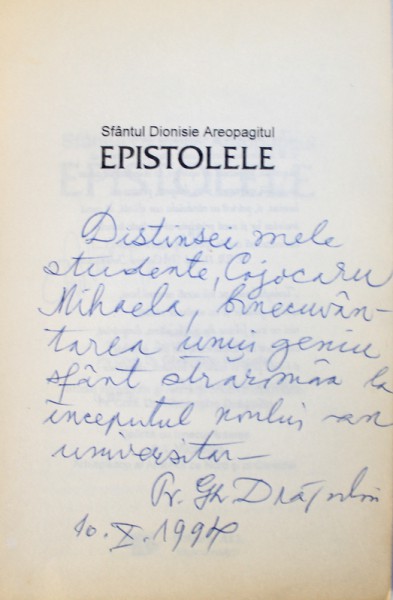 Sfântul Dionisie Areopagitul
EPISTOLELE
Distinsei mele
studente, Cojocaru
Mihaela, binecuvân-
tarea unui geniu
sfânt străromân la
începutul noului an
universitar—
Pr. Gh. Drăgulin
10.X.1994